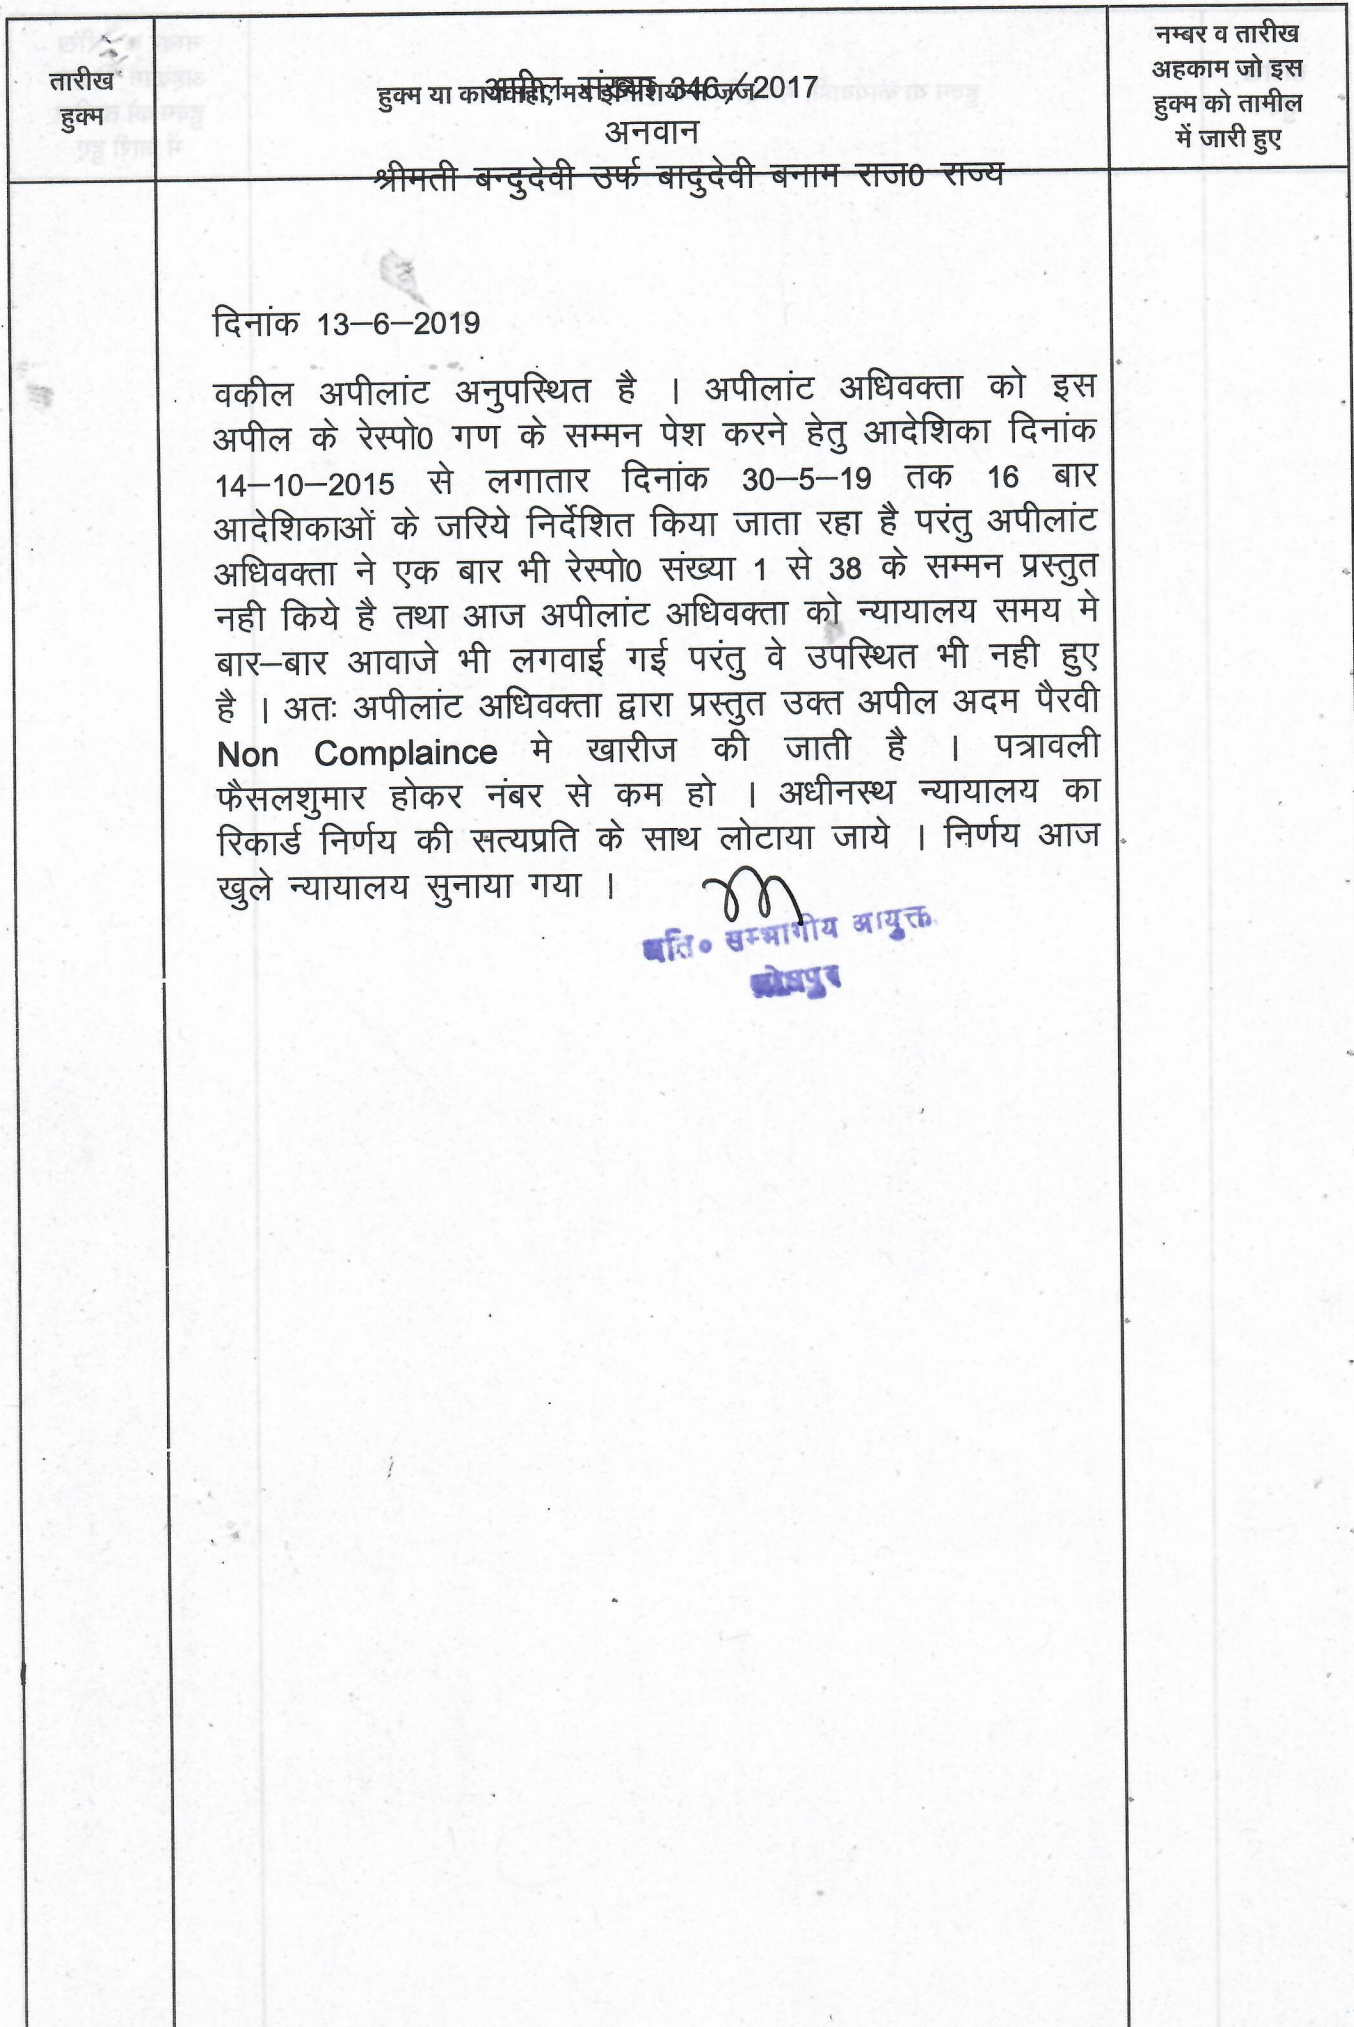 तारीख
हुक्म
हुक्म या कार्यवाही, मय इनिशियल्स जज
नम्बर व तारीख
अहकाम जो इस
हुक्म को तामील
में जारी हुए
अपील संख्या 346/2017
अनवान
श्रीमती बन्दुदेवी उर्फ बादुदेवी बनाम राज0 राज्य
दिनांक 13–6–2019
वकील अपीलांट अनुपस्थित है । अपीलांट अधिवक्ता को इस
अपील के रेस्पो0 गण के सम्मन पेश करने हेतु आदेशिका दिनांक
14–10–2015 से लगातार दिनांक 30–5–19 तक 16 बार
आदेशिकाओं के जरिये निर्देशित किया जाता रहा है परंतु अपीलांट
अधिवक्ता ने एक बार भी रेस्पो0 संख्या 1 से 38 के सम्मन प्रस्तुत
नही किये है तथा आज अपीलांट अधिवक्ता को न्यायालय समय मे
बार–बार आवाजे भी लगवाई गई परंतु वे उपस्थित भी नही हुए
है । अतः अपीलांट अधिवक्ता द्वारा प्रस्तुत उक्त अपील अदम पैरवी
Non Complaince मे खारीज की जाती है । पत्रावली
फैसलशुमार होकर नंबर से कम हो । अधीनस्थ न्यायालय का
रिकार्ड निर्णय की सत्यप्रति के साथ लोटाया जाये । निर्णय आज
खुले न्यायालय सुनाया गया ।
अति० सम्भागीय आयुक्त
जोधपुर